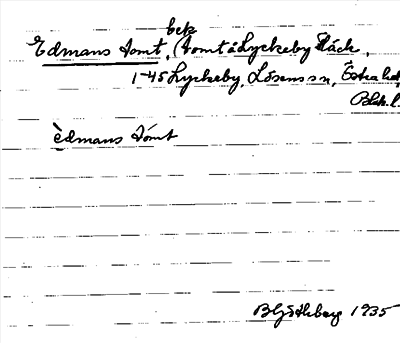 bek
Edmans tomt, (tomt å Lyckeby Räck,
1-45 Lyckeby, Lösens sn, Östra hd,
Blek.l.
èdmans tómt
B Göthberg 1935